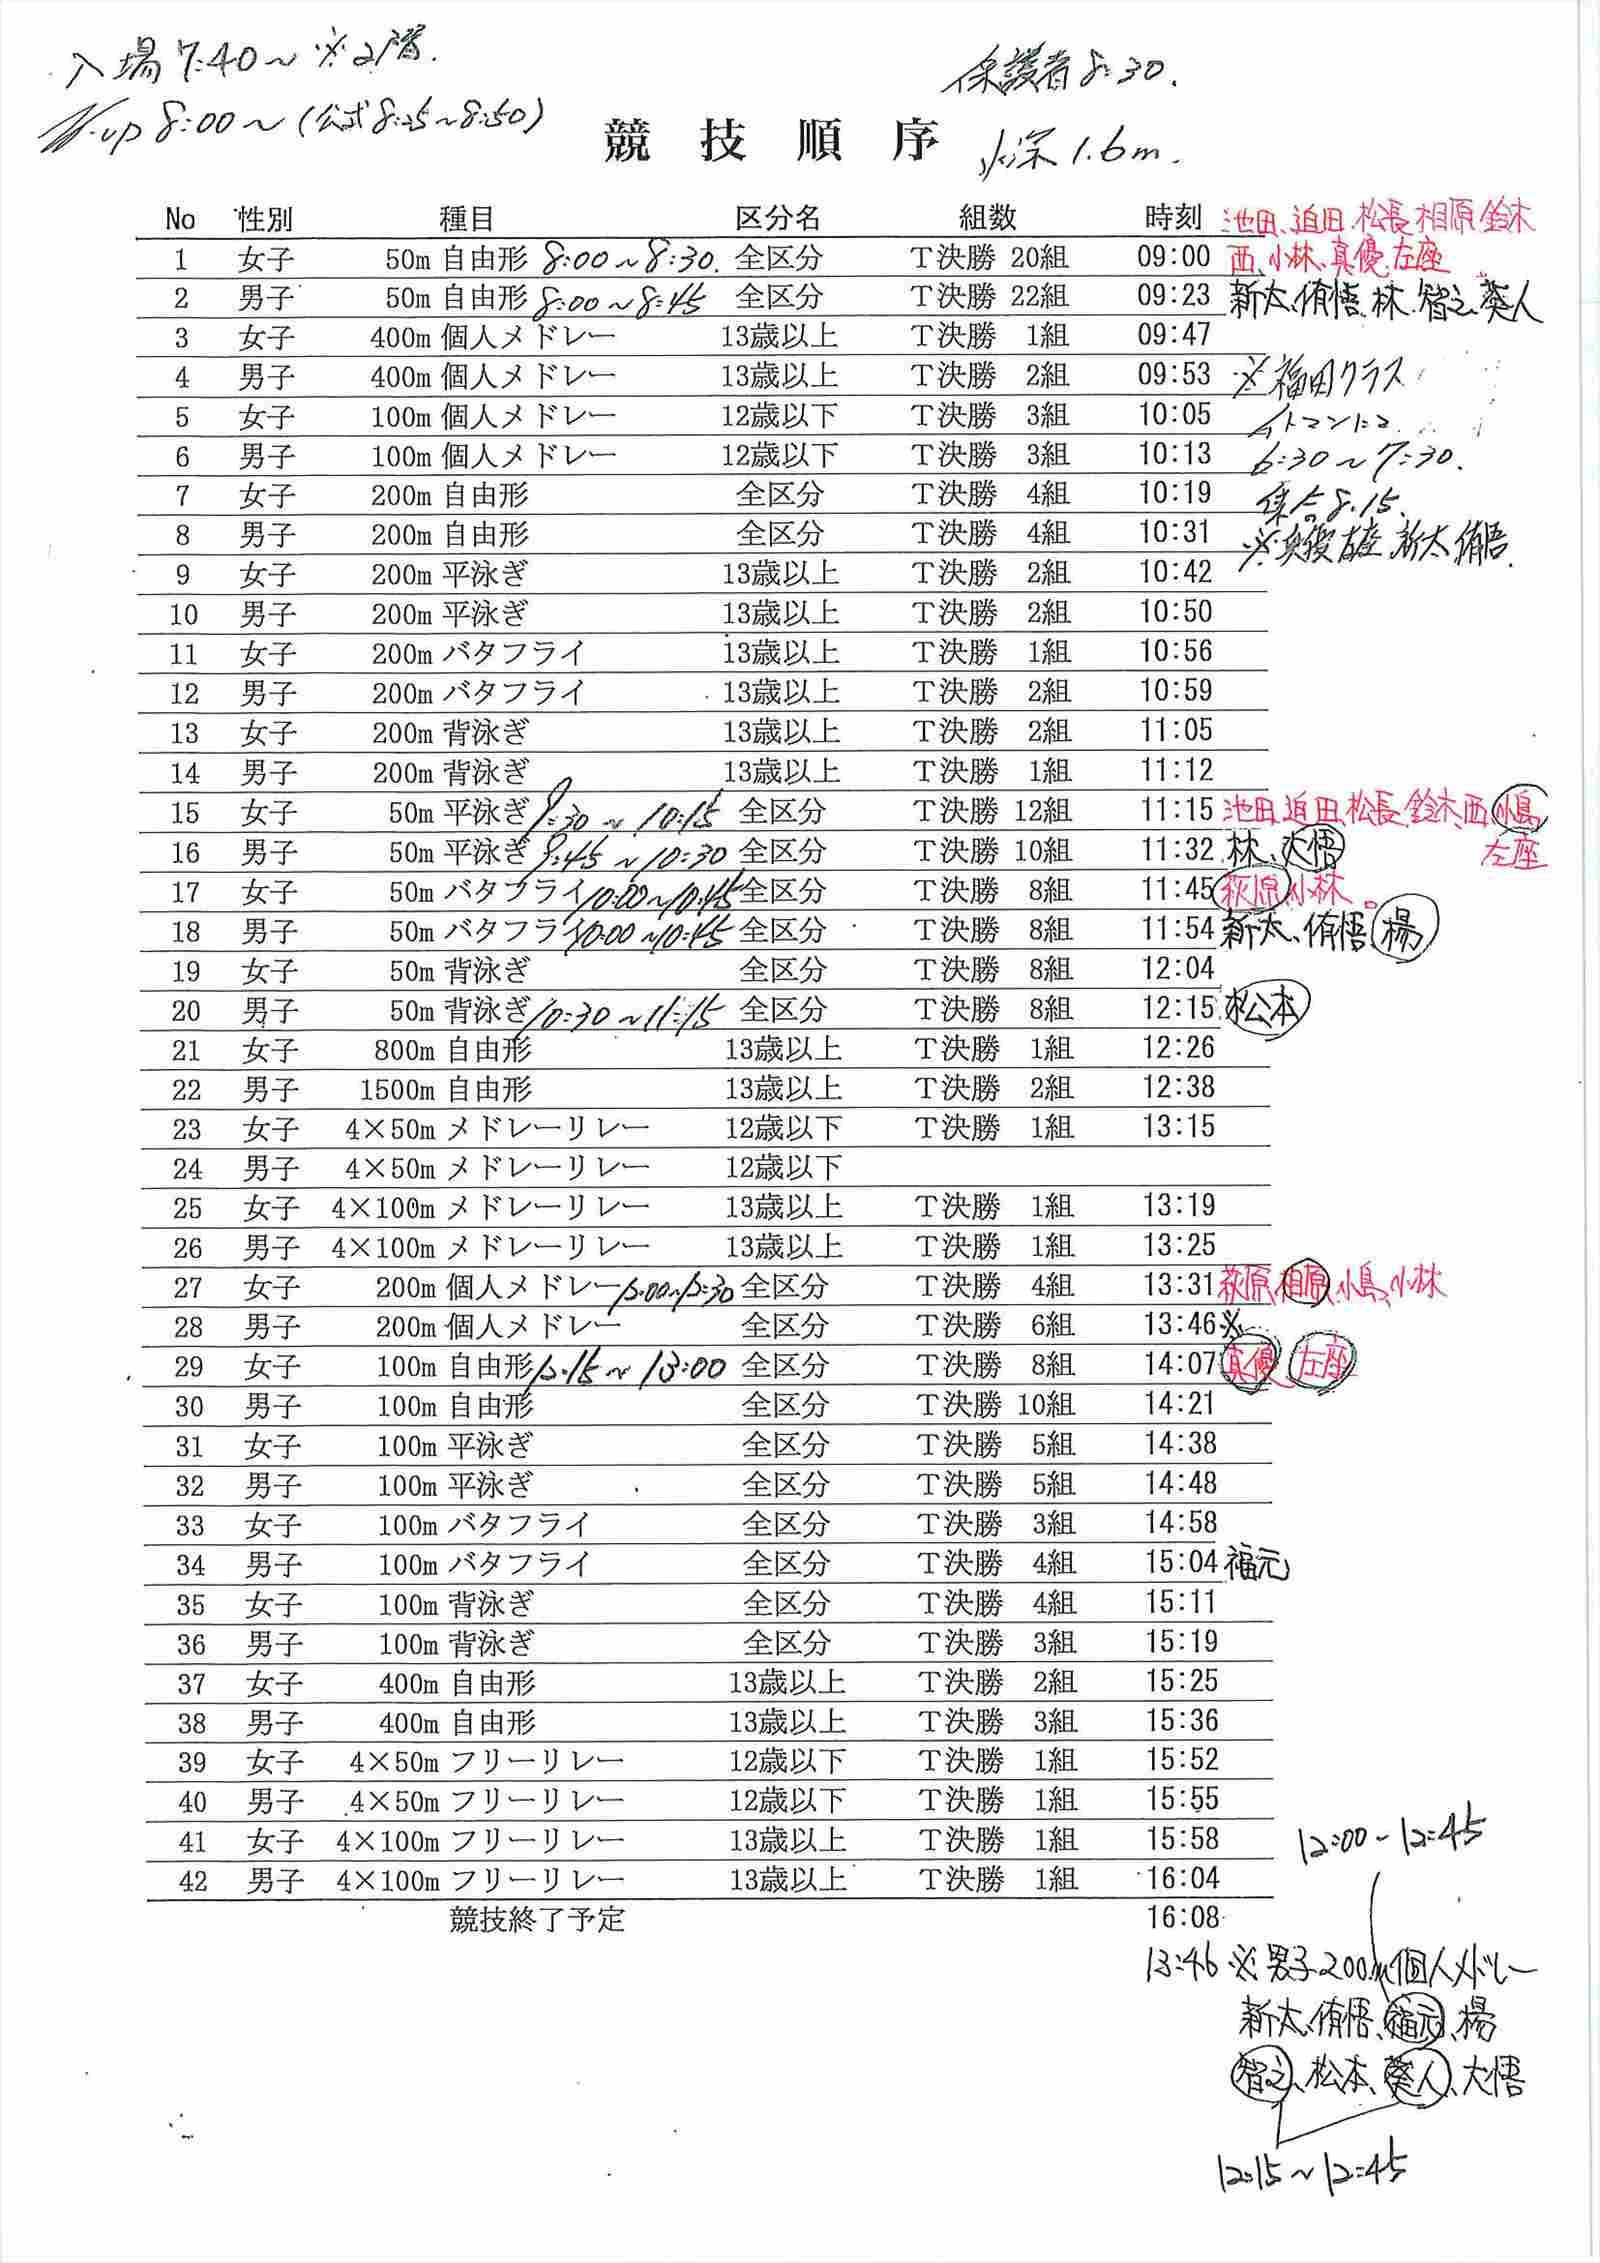 入場 7:40～ ※2階.
保護者 8:30.
W-up 8:00～(公式 8:25～8:50)
競技順序
水深 1.6m.
No 性別 種目 区分名 組数 時刻 池田、迫田、松長、相原、鈴木
1 女子 50m 自由形 8:00～8:30. 全区分 T決勝 20組 09:00 西、小林、真優、左座
2 男子 50m 自由形 8:00～8:45 全区分 T決勝 22組 09:23 新太、侑悟、林、智之、葵人
3 女子 400m 個人メドレー 13歳以上 T決勝 1組 09:47
4 男子 400m 個人メドレー 13歳以上 T決勝 2組 09:53 ※福田クラス
5 女子 100m 個人メドレー 12歳以下 T決勝 3組 10:05
6 男子 100m 個人メドレー 12歳以下 T決勝 3組 10:13 6:30～7:30.
7 女子 200m 自由形 全区分 T決勝 4組 10:19 集合 8:15.
8 男子 200m 自由形 全区分 T決勝 4組 10:31 ※真優、左座、新太、侑悟.
9 女子 200m 平泳ぎ 13歳以上 T決勝 2組 10:42
10 男子 200m 平泳ぎ 13歳以上 T決勝 2組 10:50
11 女子 200m バタフライ 13歳以上 T決勝 1組 10:56
12 男子 200m バタフライ 13歳以上 T決勝 2組 10:59
13 女子 200m 背泳ぎ 13歳以上 T決勝 2組 11:05
14 男子 200m 背泳ぎ 13歳以上 T決勝 1組 11:12
15 女子 50m 平泳ぎ 9:30～10:15 全区分 T決勝 12組 11:15 池田、迫田、松長、鈴木、西、小島
左座
16 男子 50m 平泳ぎ 9:45～10:30 全区分 T決勝 10組 11:32 林、大悟
17 女子 50m バタフライ 10:00～10:45 全区分 T決勝 8組 11:45 萩原、小林。
18 男子 50m バタフライ 10:00～10:45 全区分 T決勝 8組 11:54 新太、侑悟、楊
19 女子 50m 背泳ぎ 全区分 T決勝 8組 12:04
20 男子 50m 背泳ぎ 10:30～11:15 全区分 T決勝 8組 12:15 松本
21 女子 800m 自由形 13歳以上 T決勝 1組 12:26
22 男子 1500m 自由形 13歳以上 T決勝 2組 12:38
23 女子 4×50m メドレーリレー 12歳以下 T決勝 1組 13:15
24 男子 4×50m メドレーリレー 12歳以下
25 女子 4×100m メドレーリレー 13歳以上 T決勝 1組 13:19
26 男子 4×100m メドレーリレー 13歳以上 T決勝 1組 13:25
27 女子 200m 個人メドレー 12:00～12:30 全区分 T決勝 4組 13:31 萩原、相原、小島、小林
28 男子 200m 個人メドレー 全区分 T決勝 6組 13:46 ※
29 女子 100m 自由形 12:15～13:00 全区分 T決勝 8組 14:07 真優、左座
30 男子 100m 自由形 全区分 T決勝 10組 14:21
31 女子 100m 平泳ぎ 全区分 T決勝 5組 14:38
32 男子 100m 平泳ぎ 全区分 T決勝 5組 14:48
33 女子 100m バタフライ 全区分 T決勝 3組 14:58
34 男子 100m バタフライ 全区分 T決勝 4組 15:04 福元
35 女子 100m 背泳ぎ 全区分 T決勝 4組 15:11
36 男子 100m 背泳ぎ 全区分 T決勝 3組 15:19
37 女子 400m 自由形 13歳以上 T決勝 2組 15:25
38 男子 400m 自由形 13歳以上 T決勝 3組 15:36
39 女子 4×50m フリーリレー 12歳以下 T決勝 1組 15:52
40 男子 4×50m フリーリレー 12歳以下 T決勝 1組 15:55
41 女子 4×100m フリーリレー 13歳以上 T決勝 1組 15:58
12:00～12:45
42 男子 4×100m フリーリレー 13歳以上 T決勝 1組 16:04
競技終了予定 16:08
13:46 ※男子200m個人メドレー
新太、侑悟、福元、楊
智之、松本、葵人、大悟
12:15～12:45